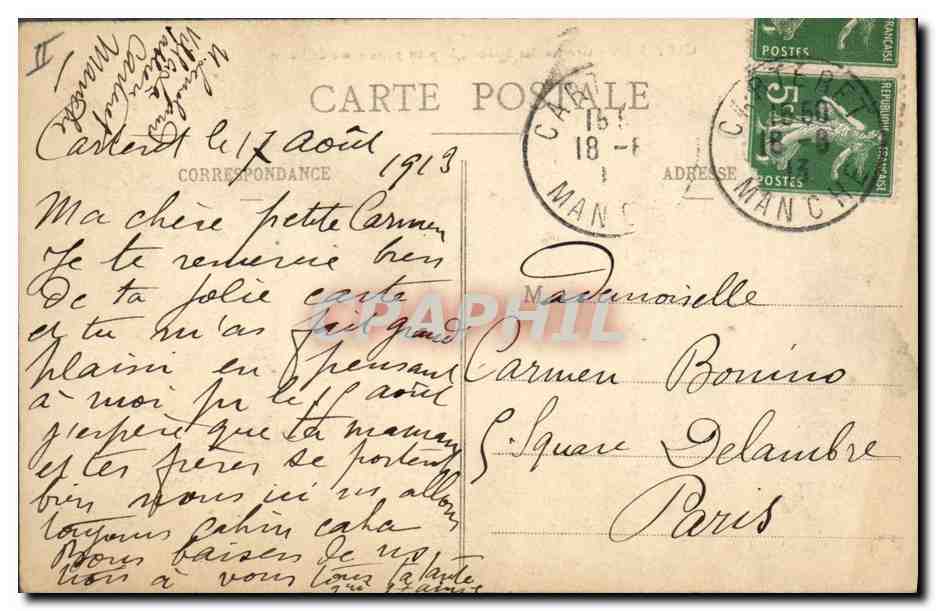 II
CARTE POSTALE
Carteret le 17 août
1913
CORRESPONDANCE
ADRESSE
Ma chère petite Carmen
Je te remercie bien
de ta jolie carte
et tu m'as fait grand
plaisir en pensant
à moi pr le 15 août
j'espère que ta maman
et tes frères se portent
bien nous ici ns allons
toujours cahin caha
Bons baisers de ns
à vous tous ta tante
Mademoiselle
Carmen Bonino
5 Square Delambre
Paris
CARTERET
15 50
18 - 8
13
MANCHE
CAR
15
18 - 8
MANC
POSTES
FRANÇAISE
5c
REPUBLIQUE FRANÇAISE
POSTES
CPAPHIL
Villa
Carteret
Manche